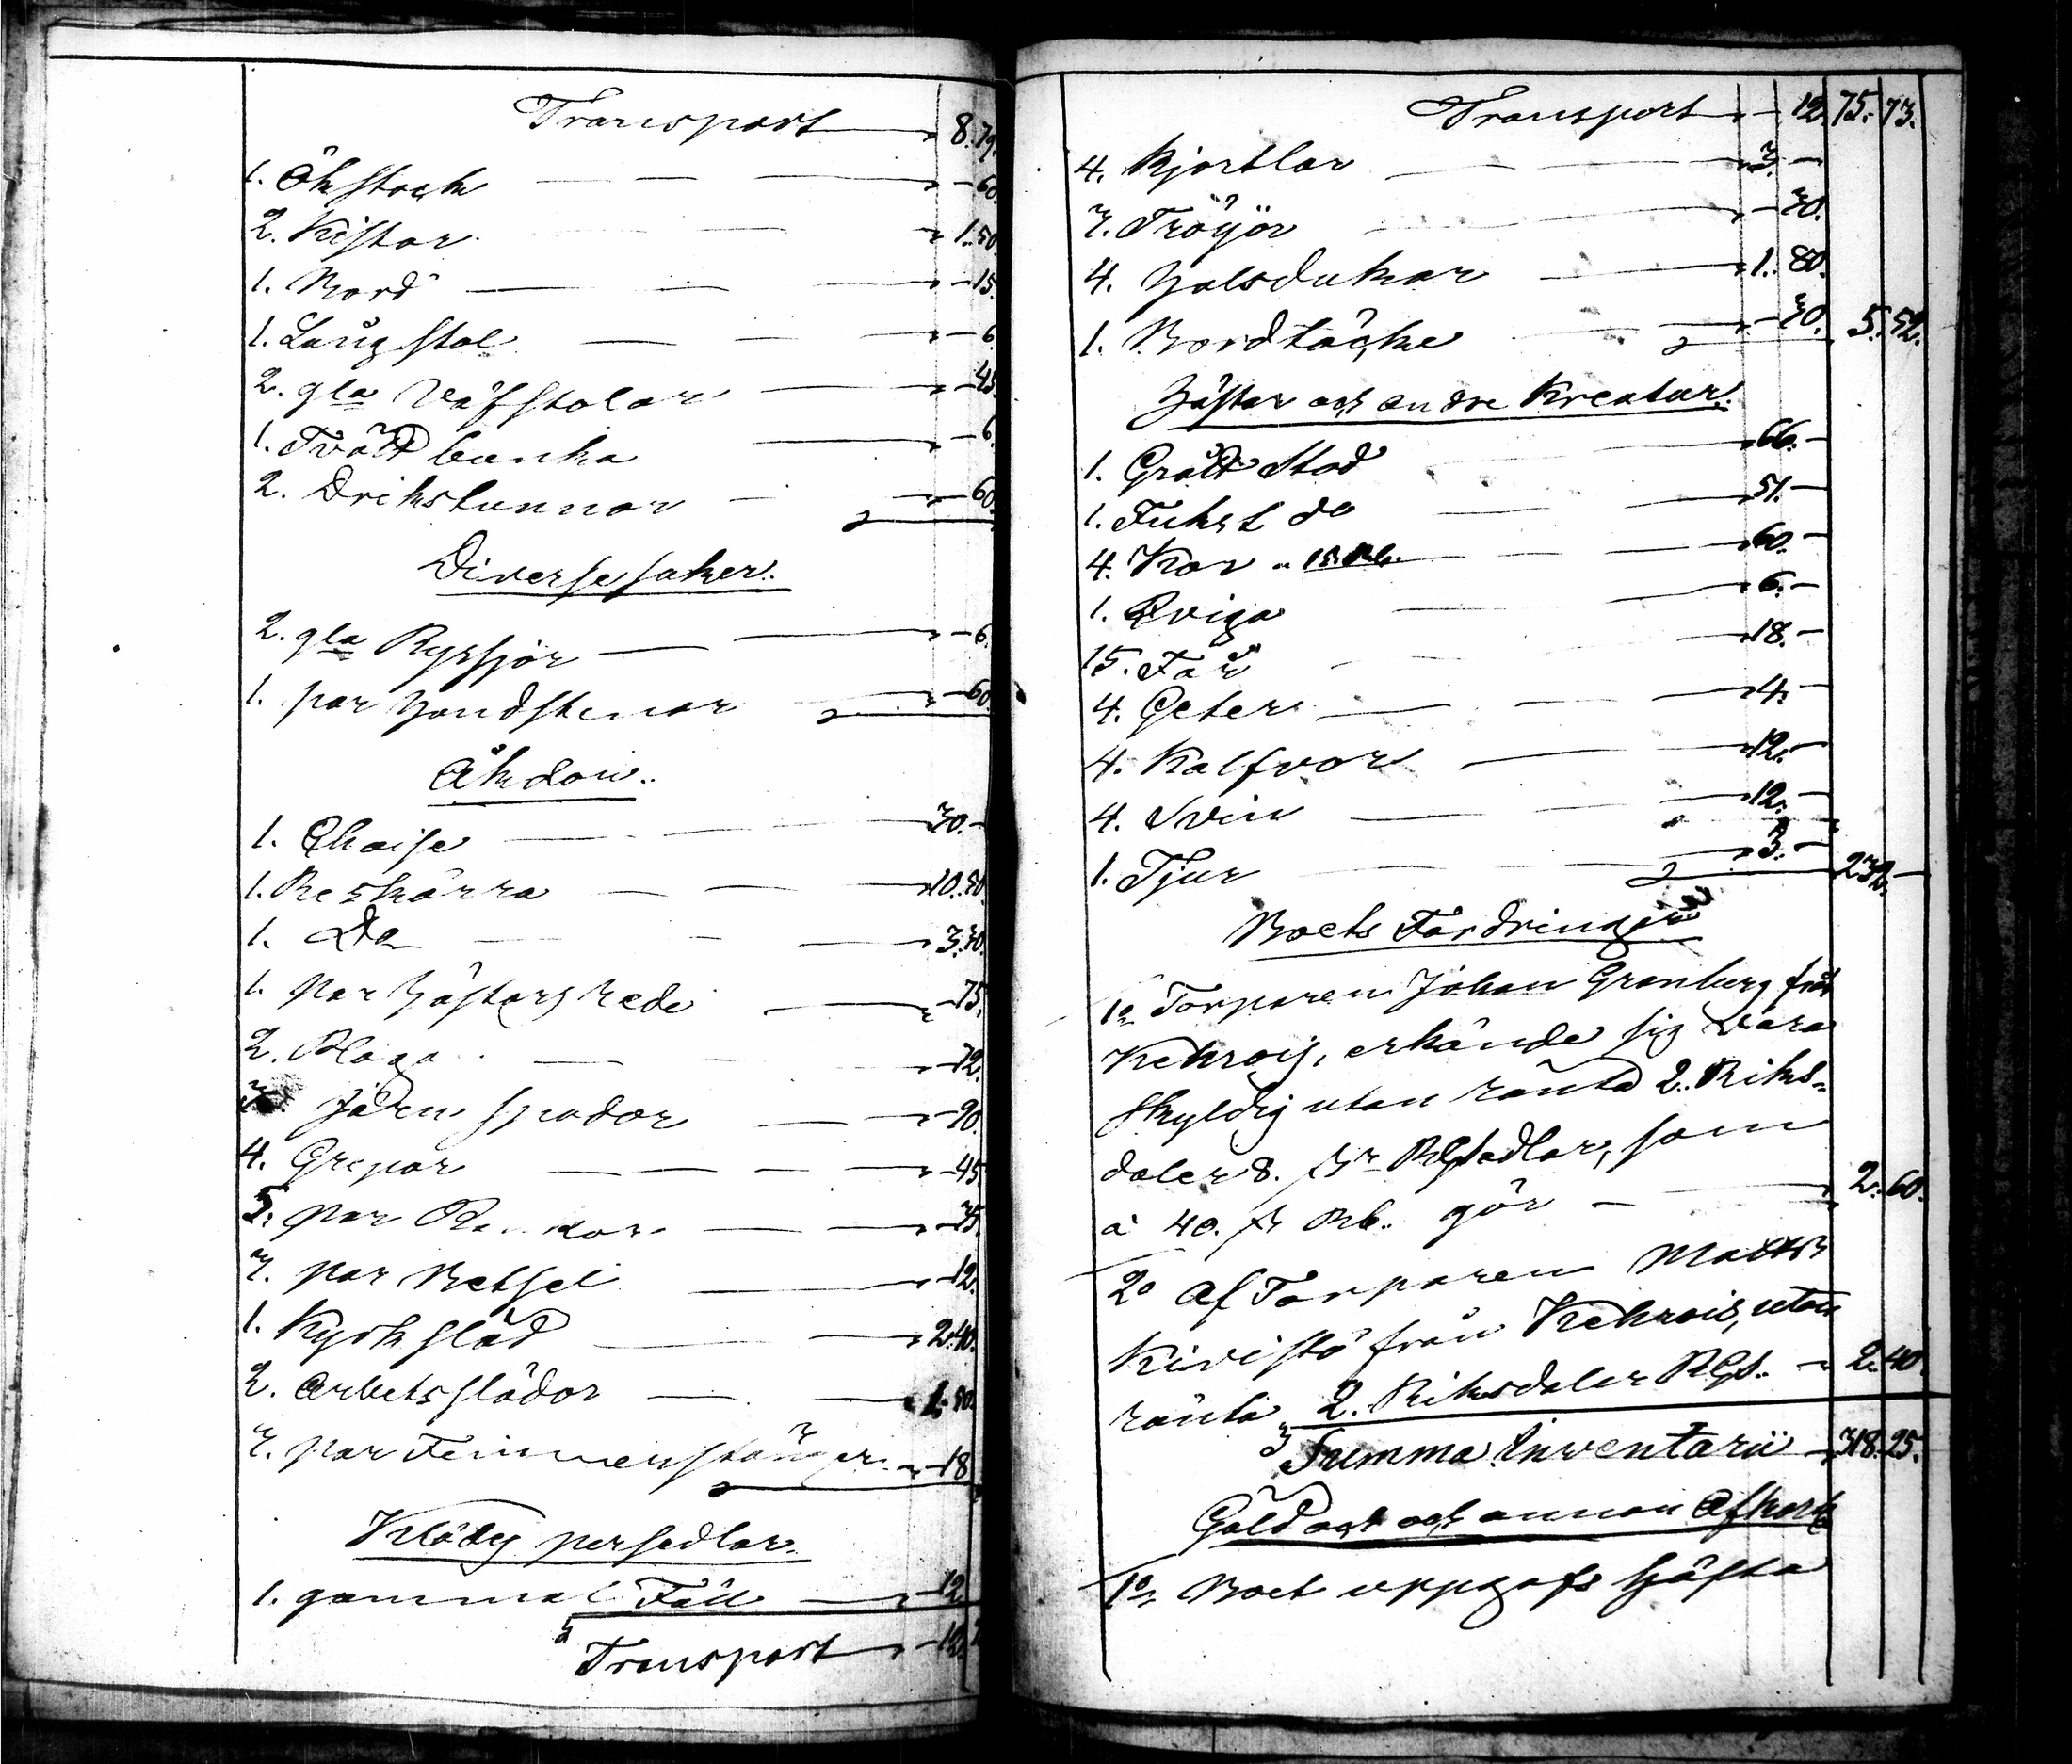 Transport 8.79.
1. Åkstock - 60.
2. Kistor 1.50
1. Bord - 15.
1. Lång stol - 6
2. gla Väfstolar - 45
1. Tvätt bunka - 6.
2. Drikstunnor - 60.
Diverse saker.
2. gla Ryssjor - 6.
1. par Handstenar - 60.
Åkdon.
1. Chaise 30. -
1. Reskärra 10.50.
1. Do 3.30.
1. Par Hästars rede - 75.
2. Ploga - 72.
3. Järn spador - 90.
4. Grepar - 45.
5. par - 75.
3. par Betsel - 12.
1. Kyrk släd 2.40.
2. Arbetsslädor 1.80.
3. par Femmerstänger - 18
Klädes persedlar.
1. gammal Fäll - 12
Transport - 12.
Transport - 12. 75. 73.
4. Kjortlar 3. -
3. Tröjor - 30.
4. Halsdukar 1. 80.
1. Bordtäcke - 30. 5. 52.
Hästar och andre Kreatur.
1. Grått Stod 66. -
1. Fukst do 51. -
4. Kor a 15 Rb. 60. -
1. Qviga 6. -
15. Får 18. -
4. Geter 4. -
4. Kalfvar 12. -
4. Svin 12. -
1. Tjur 3. - 232. -
Boets Fordringar
1o Torparen Johan Granberg från
Kehrois, erkände sig vara
skyldig utan ränta 2. Riks-
daler 8. sk RGsedlar, som
à 40. k Rb. gör 2. 60.
2o Af Torparen Matts
Kivistö från Kehrois, utan
ränta 2. Riksdaler RGs. 2. 40.
Summa Inventarii 318. 25.
Gäld och annan Afkort
1o, Boet uppgafs häfta